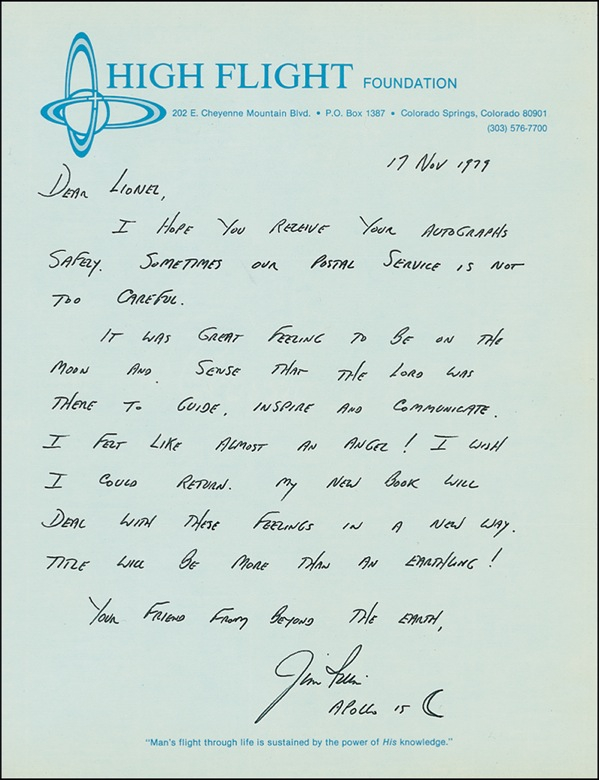 HIGH FLIGHT FOUNDATION
202 E. Cheyenne Mountain Blvd. • P.O. Box 1387 • Colorado Springs, Colorado 80901
(303) 576-7700
17 Nov 1979
DEAR LIONEL,
I HOPE YOU RECEIVE YOUR AUTOGRAPHS
SAFELY. SOMETIMES OUR POSTAL SERVICE IS NOT
TOO CAREFUL.
IT WAS GREAT FEELING TO BE ON THE
MOON AND SENSE THAT THE LORD WAS
THERE TO GUIDE, INSPIRE AND COMMUNICATE.
I FELT LIKE ALMOST AN ANGEL! I WISH
I COULD RETURN. MY NEW BOOK WILL
DEAL WITH THESE FEELINGS IN A NEW WAY.
TITLE WILL BE MORE THAN AN EARTHLING!
YOUR FRIEND FROM BEYOND THE EARTH,
Jim Irwin
APOLLO 15
"Man's flight through life is sustained by the power of His knowledge."